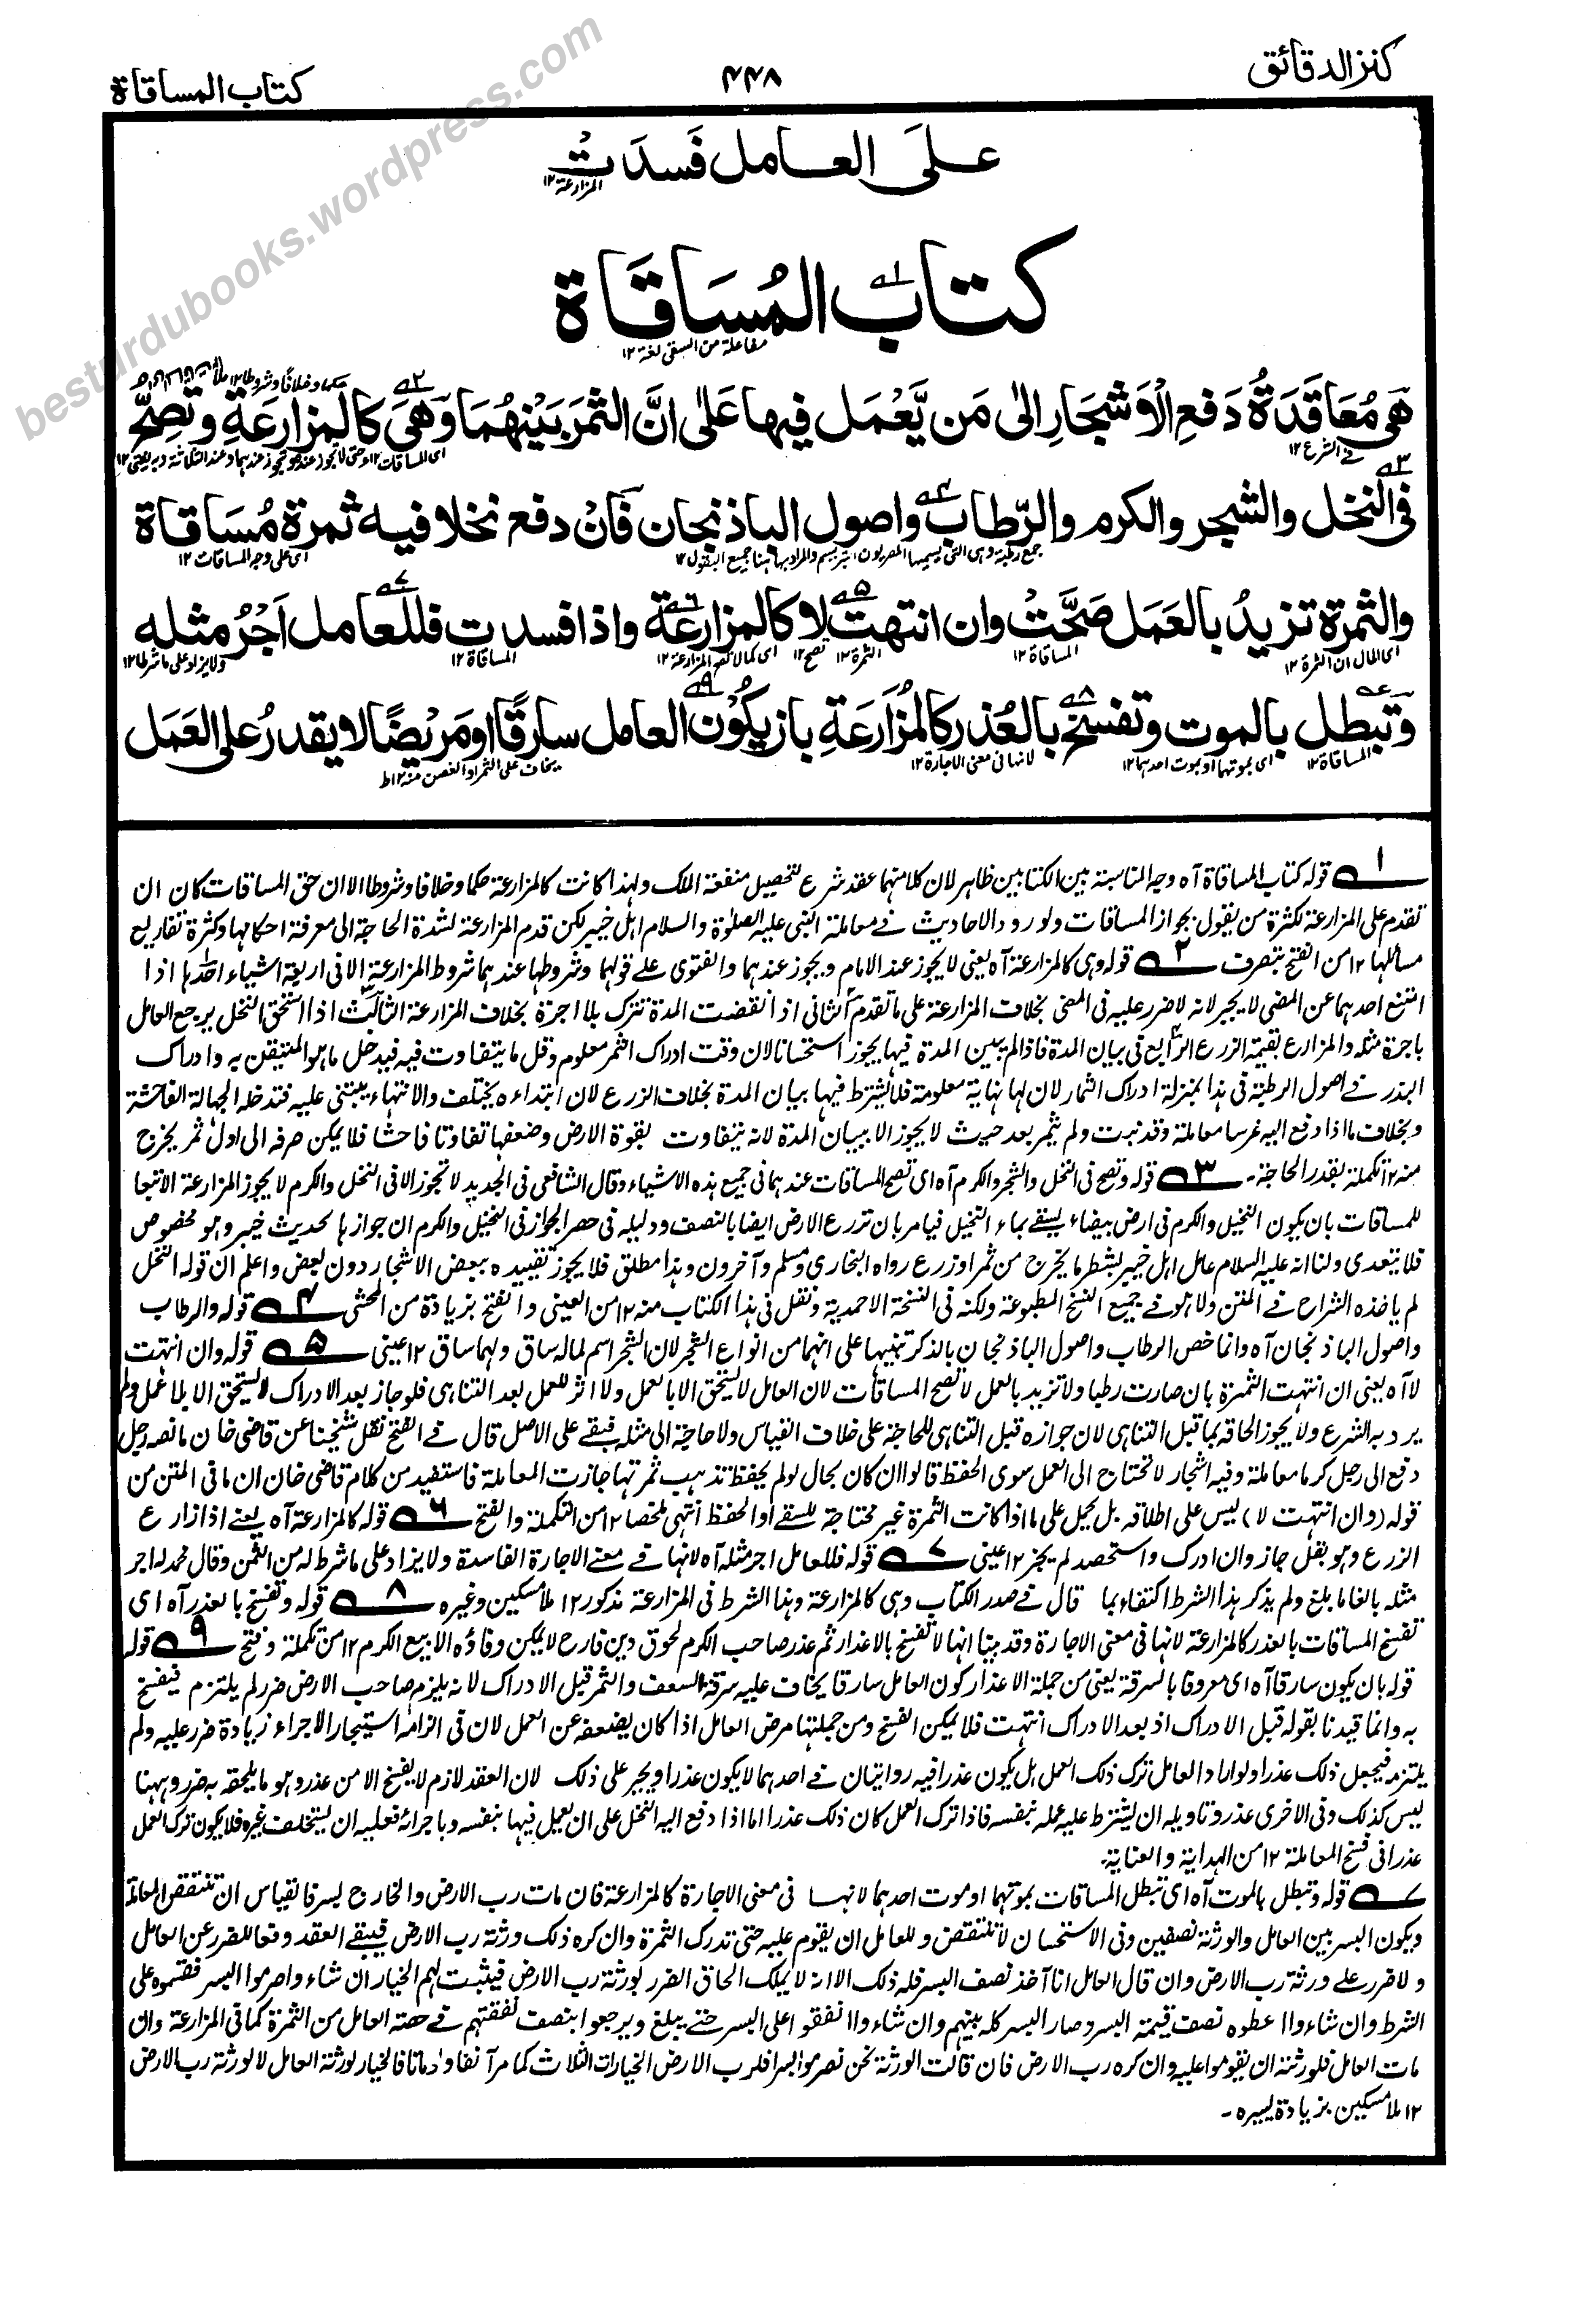 كنز الدقائق
٤٤٨
كتاب المساقاة
besturdubooks.wordpress.com
علَى العامل فَسدَتْ
المزارعة ١٢
كتابُ المُسَاقَاة
مفاعلة من السقى لغة ١٢
هَى مُعَاقَدَةُ دَفعِ الْاَشجَارِ الىٰ مَن يَّعْمَل فيها عَلىٰ انَّ الثمَر بَيْنهُمَا وَهَىَ كالمزارعَةِ وتصِحُّ
فى الشرع ١٢
فى النخل والشجر والكرم والرّطاب واصول الباذنجان فَانْ دفع نخلا فيه ثمرة مُسَاقاة
جمع رطبة وهى التى يسميها المصريون البرسيم والمراد بها هنا جميع البقول ١٢ اى على وجه المساقات ١٢
والثمرة تزيدُ بالعَمَل صَحَّتْ وان انتهت لا كالمزارعة واذا فسدت فللعامل اَجْرُ مثله
اى الحال ان الثمرة ١٢ المساقاة ١٢ الثمرة ١٢ تصح ١٢ المساقاة ١٢ ولا يزاد على ما شرطا ١٢
وتبطل بالموت وتفسخ بالعُذر كالمُزارَعَةِ بان يكُوْن العامل سارقًا او مَريْضًا لا يقدرُ على العَمَل
المساقاة ١٢ اى بموتهما او بموت احدهما ١٢ لانها فى معنى الاجارة ١٢ يخاف على الثمر او الغصن منه ١٢ط
١ قوله كتاب المساقاة آه وجه المناسبة بين الكتابين ظاهر لان كلا منهما عقد شرع لتحصيل منفعة الملك ولهذا كانت كالمزارعة حكما وخلافا وشروطا الا ان حق المساقات كان ان
تقدم على المزارعة لكثرة من يقول بجواز المساقات ولورود الاحاديث فى معاملة النبى عليه الصلوٰة والسلام اهل خيبر لكن قدم المزارعة لشدة الحاجة الى معرفة احكامها وكثرة تفاريع
مسائلها ١٢ من الفتح بتصرف ٢ قوله وهى كالمزارعة آه يعنى لا يجوز عند الامام ويجوز عندهما والفتوى على قولهما وشروطها عندهما شروط المزارعة الا فى اربعة اشياء احدها اذا
امتنع احدهما عن المضى لا يجبر لانه لا ضرر عليه فى المضى بخلاف المزارعة على ما تقدم الثانى اذا انقضت المدة تترك بلا اجرة بخلاف المزارعة الثالث اذا استحق النخل يرجع العامل
باجرة مثله والمزارع بقيمة الزرع الرابع فى بيان المدة فاذا لم يبين المدة فيها يجوز استحسانا لان وقت ادراك الثمر معلوم وقل ما يتفاوت فيه فيدخل ما هو المتيقن به وادراك
البذر فى اصول الرطبة فى هذا بمنزلة ادراك الثمار لان لها نهاية معلومة فلا يشترط فيها بيان المدة بخلاف الزرع لان ابتداءه يختلف والانتهاء يبتنى عليه فتدخله الجهالة الفاحشة
وبخلاف ما اذا دفع اليه غرسا معاملة وقد نبت ولم يثمر بعد حيث لا يجوز الا ببيان المدة لانه يتفاوت بقوة الارض وضعفها تفاوتا فاحشا فلا يمكن صرفه الى اول ثمر يخرج
منه ١٢ تكملة بقدر الحاجة۔ ٣ قوله وتصح فى النخل والشجر والكرم آه اى تصح المساقات عندهما فى جميع هذه الاشياء وقال الشافعى فى الجديد لا تجوز الا فى النخل والكرم لا يجوز المزارعة الا تبعا
للمساقات بان يكون النخيل والكرم فى ارض بيضاء يسقى بماء النخيل فيامر بان تزرع الارض ايضا بالنصف ودليله فى حصر الجواز فى النخيل والكرم ان جوازها لحديث خيبر وهو مخصوص
فلا يتعدى ولنا انه عليه السلام عامل اهل خيبر بشطر ما يخرج من ثمر او زرع رواه البخارى ومسلم وآخرون وهذا مطلق فلا يجوز تقييده ببعض الاشجار دون بعض واعلم ان قوله النخل
لم ياخذه الشراح فى المتن ولا هو فى جميع النسخ المطبوعة ولكنه فى النسخة الاحمدية ونقل فى هذا الكتاب منه ١٢ من العينى والفتح بزيادة من المحشى ٤ قوله والرطاب
واصول الباذنجان آه وانما خص الرطاب واصول الباذنجان بالذكر تنبيها على انهما من انواع الشجر لان الشجر اسم لما له ساق ولهما ساق ١٢ عينى ٥ قوله وان انتهت
لا آه يعنى ان انتهت الثمرة بان صارت رطبا ولا تزيد بالعمل لا تصح المساقات لان العامل لا يستحق الا بالعمل ولا اثر للعمل بعد التناهى فلو جاز بعد الادراك لاستحق الا بلا عمل ولم
يرد به الشرع ولا يجوز الحاقه بما قبل التناهى لان جوازه قبل التناهى للحاجة على خلاف القياس ولا حاجة الى مثله فبقى على الاصل قال فى الفتح نقل شيخنا عن قاضى خان ما نصه رجل
دفع الى رجل كرما معاملة وفيه اشجار لا تحتاج الى العمل سوى الحفظ قالوا ان كان بحال لو لم يحفظ تذهب ثمرتها جازت المعاملة فاستفيد من كلام قاضى خان ان ما فى المتن من
قوله (وان انتهت لا) ليس على اطلاقه بل يحمل على ما اذا كانت الثمرة غير محتاجة للسقى او الحفظ انتهى ملخصا ١٢ من التكملة والفتح ٦ قوله كالمزارعة آه يعنى اذا زارع
الزرع وهو بقل جاز وان ادرك واستحصد لم يجز ١٢ عينى ٧ قوله فللعامل اجر مثله آه لانها فى معنى الاجارة الفاسدة ولا يزاد على ما شرط له من الثمن وقال محمد له اجر
مثله بالغا ما بلغ ولم يذكر هذا الشرط اكتفاء بما قال فى صدر الكتاب وهى كالمزارعة وهذا الشرط فى المزارعة مذكور ١٢ ملا مسكين وغيره ٨ قوله وتفسخ بالعذر آه اى
تفسخ المساقات بالعذر كالمزارعة لانها فى معنى الاجارة وقد بينا انها لا تفسخ بالاعذار ثم عذر صاحب الكرم لحوق دين فادح لا يمكن وفاؤه الا ببيع الكرم ١٢ من تكملة وفتح ٩ قوله
قوله بان يكون سارقا آه اى معروفا بالسرقة يعنى من جملة الاعذار كون العامل سارقا يخاف عليه سرقة السعف والثمر قبل الادراك لانه يلزم صاحب الارض ضرر لم يلتزم فيفسخ
به وانما قيدنا بقوله قبل الادراك اذ بعد الادراك انتهت فلا يمكن الفسخ ومن جملتها مرض العامل اذا كان يضعفه عن العمل لان فى الزامه استيجار الاجراء زيادة ضرر عليه ولم
يلتزمه فيجعل ذلك عذرا ولو اراد العامل ترك ذلك العمل هل يكون عذرا فيه روايتان فى احدهما لا يكون عذرا ويجبر على ذلك لان العقد لازم لا يفسخ الا من عذر وهو ما يلحقه به ضرر وههنا
ليس كذلك وفى الاخرى عذر وتاويله ان يشترط عليه عمله بنفسه فاذا ترك العمل كان ذلك عذرا اما اذا دفع اليه النخل على ان يعمل فيها بنفسه وباجرائه فعليه ان يستخلف غيره فلا يكون ترك العمل
عذرا فى فسخ المعاملة ١٢ من الهداية والعناية۔
قوله وتبطل بالموت آه اى تبطل المساقات بموتهما او موت احدهما لانها فى معنى الاجارة كالمزارعة فان مات رب الارض والخارج بسر فالقياس ان تنتقض المعاملة
ويكون البسر بين العامل والورثة نصفين وفى الاستحسان لا تنتقض وللعامل ان يقوم عليه حتى تدرك الثمرة وان كره ذلك ورثة رب الارض فيبقى العقد دفعا للضرر عن العامل
ولا ضرر على ورثة رب الارض وان قال العامل انا آخذ نصف البسر فله ذلك الا انه لا يملك الحاق الضرر بورثة رب الارض فيثبت لهم الخيار ان شاءوا صرموا البسر فقسموه على
الشرط وان شاءوا اعطوه نصف قيمة البسر وصار البسر كله بينهم وان شاءوا انفقوا على البسر حتى يبلغ ويرجعوا بنصف نفقتهم فى حصة العامل من الثمرة كما فى المزارعة وان
مات العامل فلورثته ان يقوموا عليه وان كره رب الارض فان قالت الورثة نحن نصرمه بسرا فلرب الارض الخيارات الثلاث كما مر آنفا وان ماتا فالخيار لورثة العامل لا لورثة رب الارض
١٢ ملا مسكين بزيادة يسيرة۔